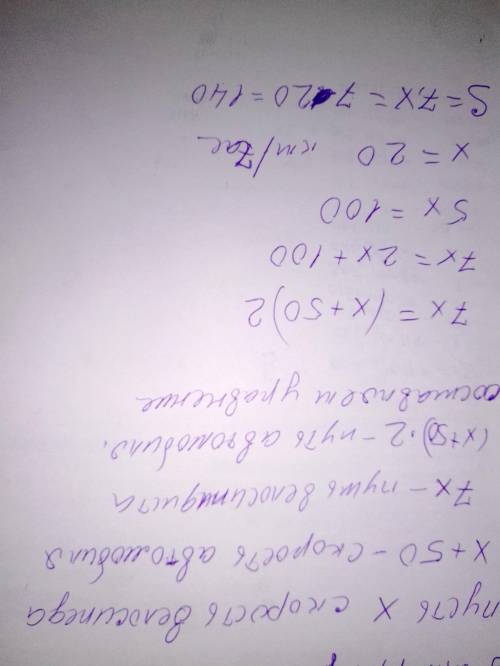 пусть x скорость велосипеда
x + 50 - скорость автомобиля
7x - путь велосипедиста
(x+50)·2 - путь автомобиля.
составляем уравнение
7x = (x + 50)2
7x = 2x + 100
5x = 100
x = 20 км/час
S = 7x = 7·20 = 140